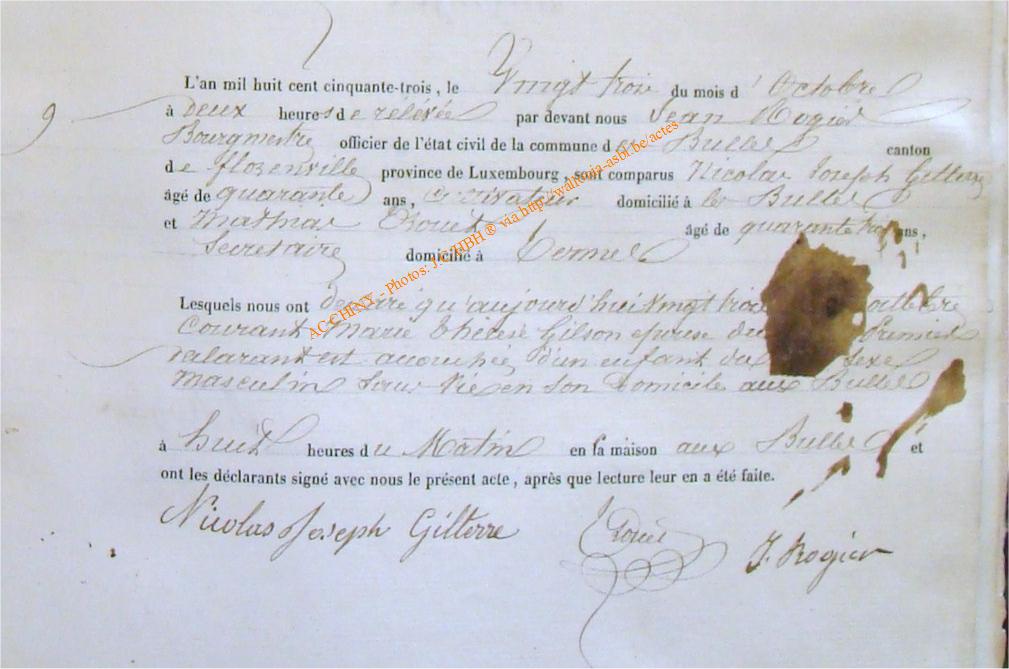 L'an mil huit cent cinquante-trois, le Vingt trois du mois d' Octobre
9 à deux heures de rélévée par devant nous Jean Rogier
Bourgmestre officier de l'état civil de la commune des Bulles canton
de florenville province de Luxembourg, sont comparus Nicolas Joseph Gilterre
âgé de quarante ans, Cultivateur domicilié à les Bulles
et Mathias âgé de quarante trois ans,
Secretaire domicilié à Termes
Lesquels nous ont declaré qu'aujourd'hui vingt trois octobre
Courant, Marie Therese Gilson epouse du Premier
déclarant est accouchée d'un enfant du sexe
masculin Sans Vie en son Domicile aux Bulles
à huit heures du Matin en sa maison aux Bulles et
ont les déclarants signé avec nous le présent acte, après que lecture leur en a été faite.
Nicolas Joseph Gilterre J. Rogier
AC CHINY. - Photos: J.C. HBH ® via http://wallonia-asbl.be/actes